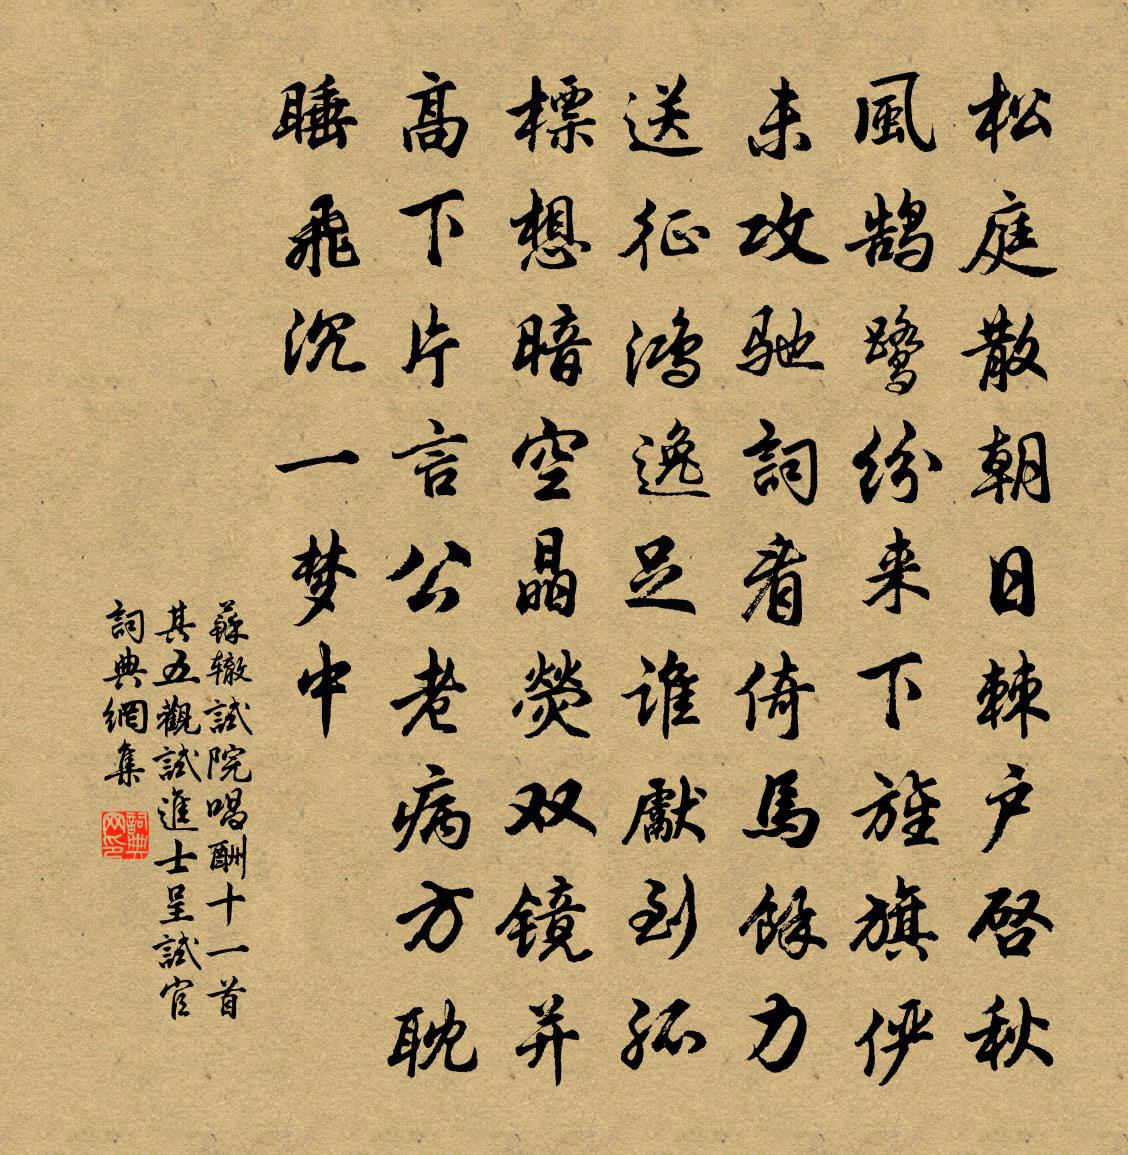 松庭散朝日棘户啓秋
風鹄鹭紛来下旌旗俨
未攻驰詞看倚馬餘力
送征鸿逸足誰獻到孤
標想暗空晶熒双镜并
高下片言公老病方耽
睡飛沉一梦中
蘇辙試院唱酬十一首
其五觀試進士呈試官
詞典網集
詞典网印